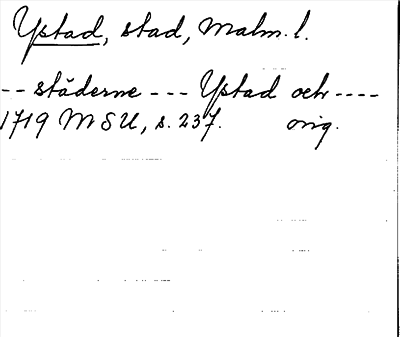 Ystad, stad, Malm. l.
-- städerne --- Ystad och ----
1719 MSU, s. 237. orig.